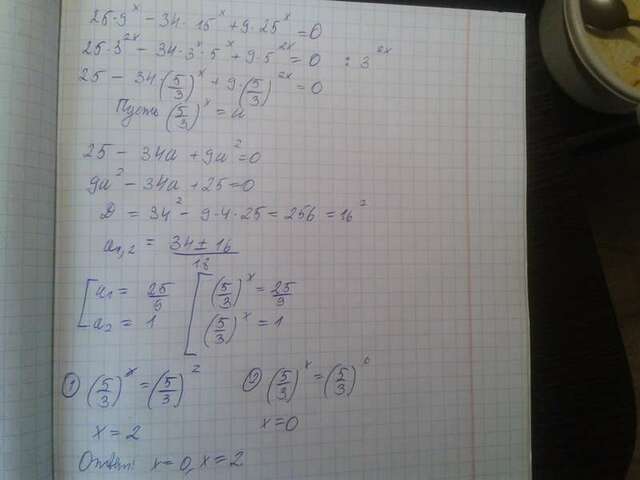 25·9^x − 34·15^x + 9·25^x = 0
25·3^2x − 34·3^x·5^x + 9·5^2x = 0 : 3^2x
25 − 34·(5/3)^x + 9·(5/3)^2x = 0
Пусть (5/3)^x = a
25 − 34a + 9a^2 = 0
9a^2 − 34a + 25 = 0
D = 34^2 − 9·4·25 = 256 = 16^2
a1,2 = (34 ± 16)/18
[ a1 = 25/9 [ (5/3)^x = 25/9
a2 = 1 (5/3)^x = 1
① (5/3)^x = (5/3)^2 ② (5/3)^x = (5/3)^0
x = 2 x = 0
Ответ: x = 0, x = 2